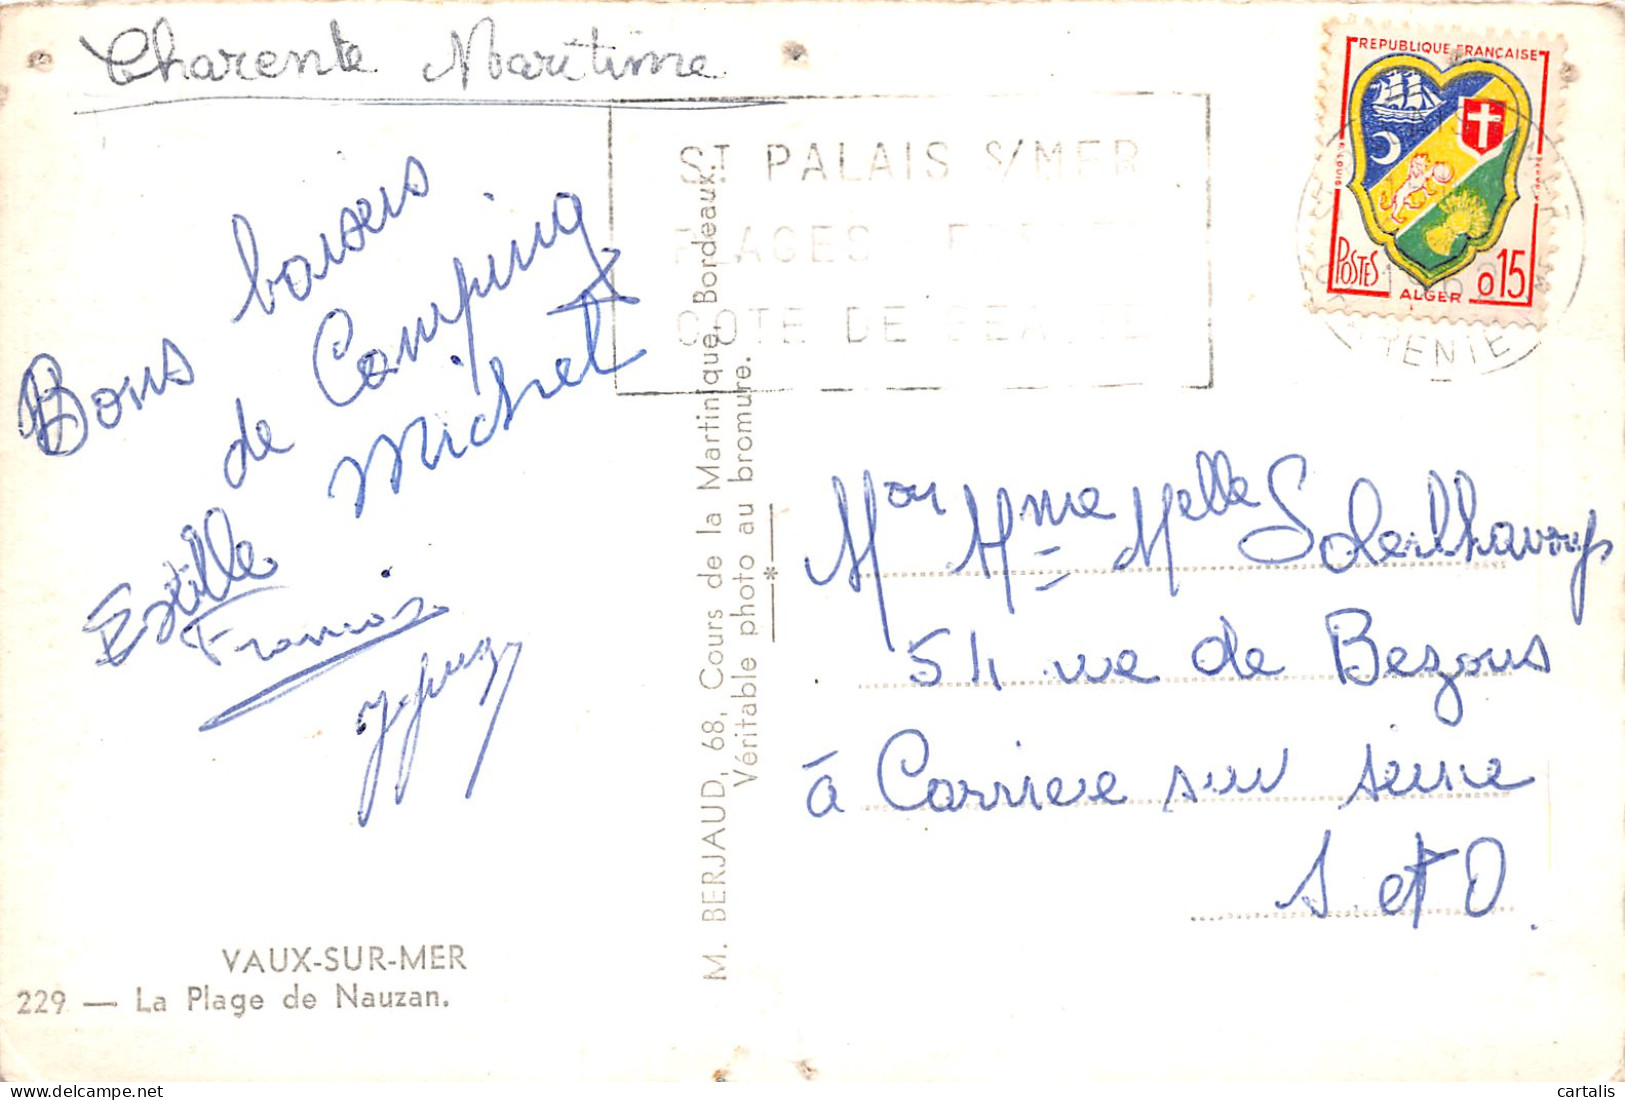 Charente Maritime
Bons baisers
de Camping
Michel
Estelle
Francois
VAUX-SUR-MER
229 — La Plage de Nauzan.
M. BERJAUD, 68, Cours de la Martinique, Bordeaux.
Véritable photo au bromure.
ST PALAIS S/MER
PLAGES - FORET
COTE DE BEAUTE
REPUBLIQUE FRANÇAISE
POSTES
ALGER
0,15
Mon Mme Melle Solerlhavoup
51 rue de Bezons
à Carrieres sur seine
S et O.
cartalis